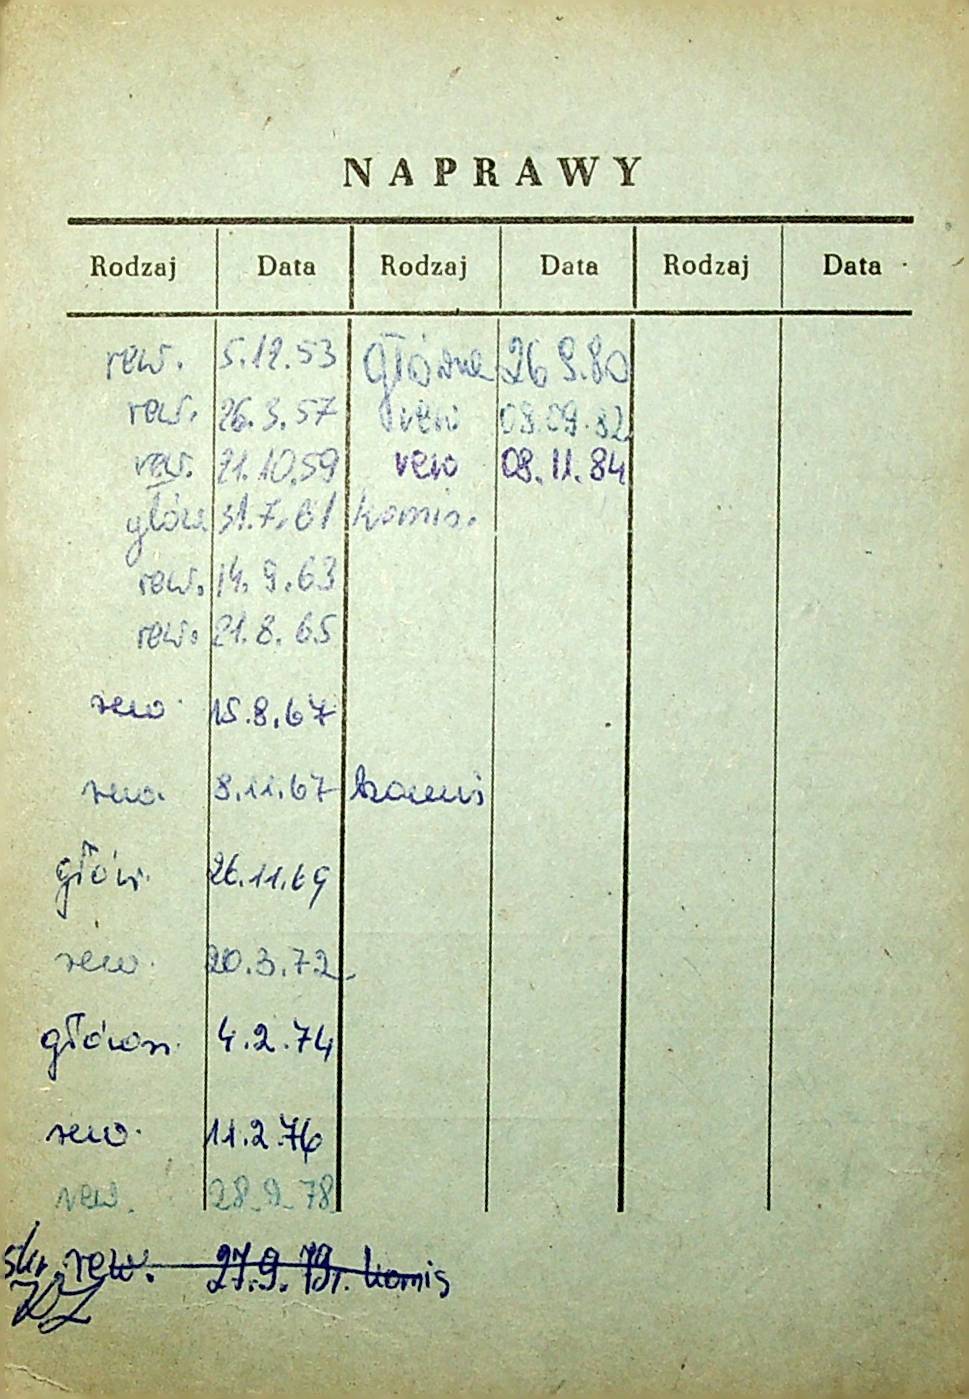 NAPRAWY
Rodzaj Data Rodzaj Data Rodzaj Data
rew. 5.12.53 główna 26 9.80
rew. 26.3.57 rew 08.09.82
rew. 21.10.59 rew 08.11.84
główn 31.7.61 komis.
rew. 14.9.63
rew. 21.8.65
rew. 15.8.67
rew. 8.11.67 komis
główn. 26.11.69
rew. 20.3.72
główn. 4.2.74
rew. 11.2.76
rew. 28.9.78
skr. rew. 27.9.79r. komis